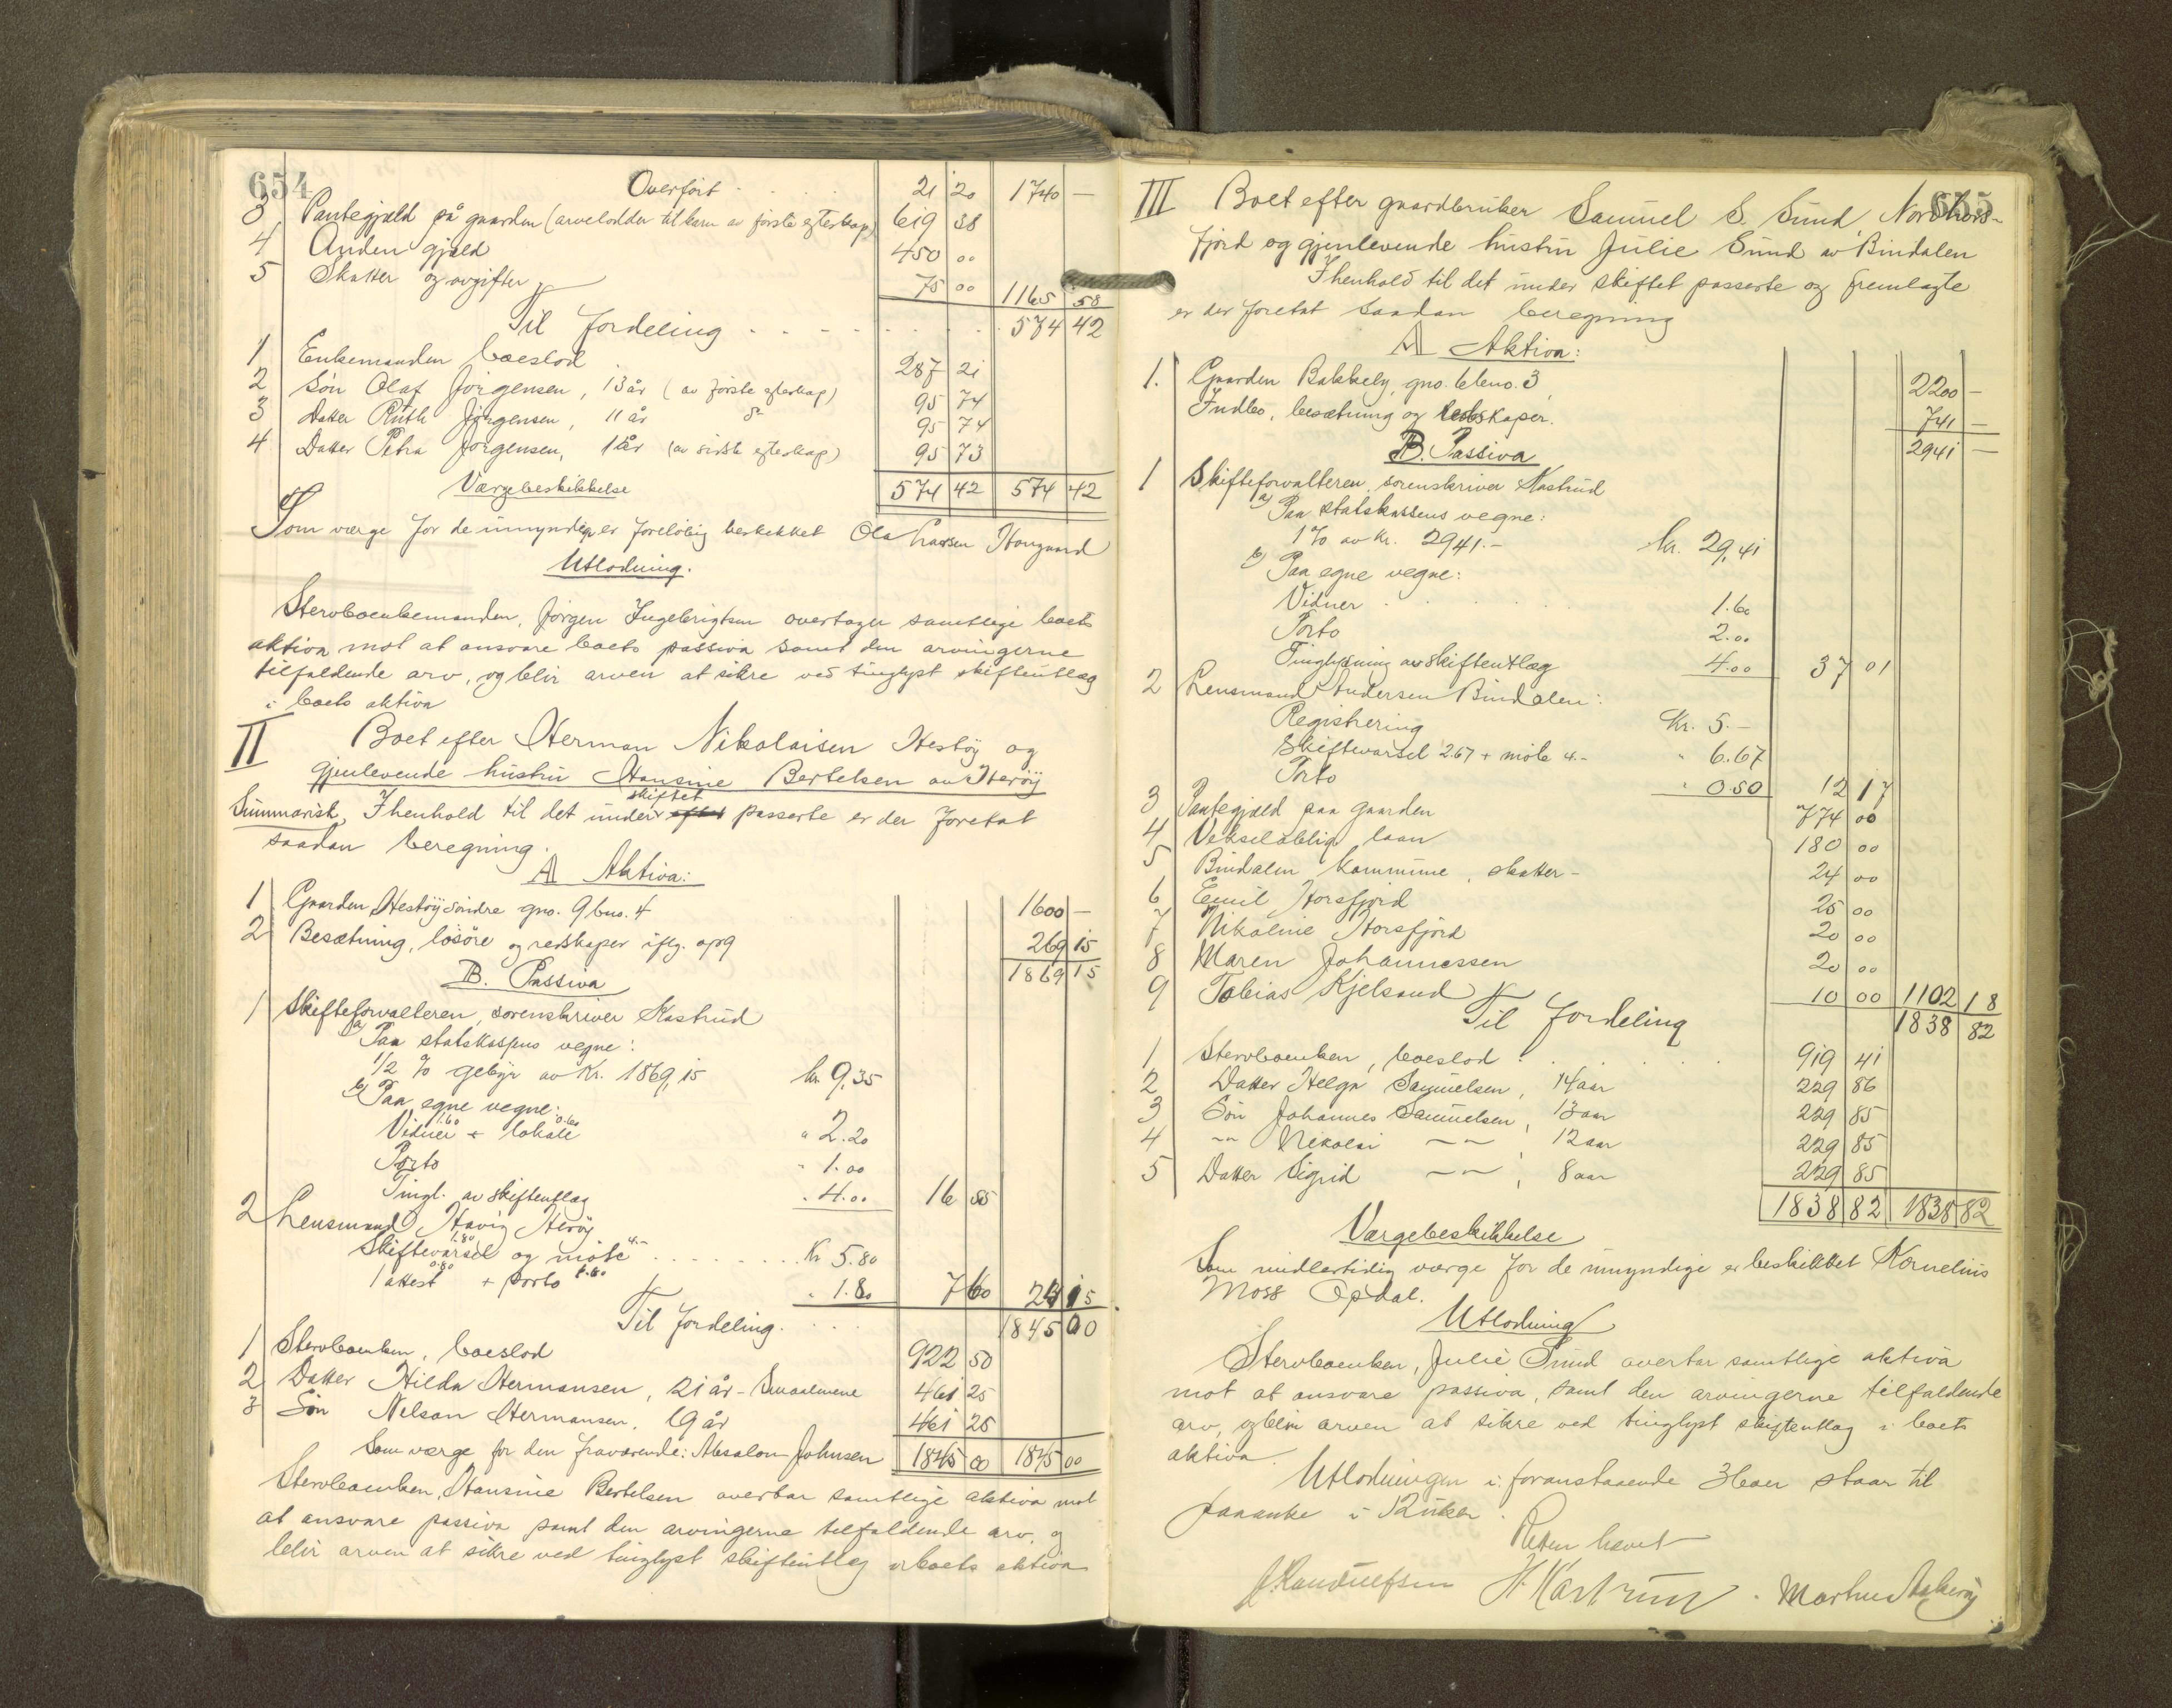 654
Overført . . . . 21 20 1740 —
3 Pantegjæld på gaarden (arvelodder til barn av første egteskap) 619 38
4 Anden gjæld 450 00
5 Skatter og avgifter 75 00 1165 58
Til fordeling . . . . . . . . 574 42
1 Enkemanden boeslod 287 21
2 Søn Olaf Jørgensen, 13 år (av første egteskap) 95 74
3 Datter Ruth Jørgensen, 11 år do 95 74
4 Datter Petra Jørgensen, 1 år (av sidste egteskap) 95 73
Værgebeskikkelse 574 42 574 42
Som værge for de umyndige er foreløbig beskikket Ola Larsen Haugaard
Utlodning.
Stervboenkemanden, Jørgen Ingebrigtsen overtager samtlige boets
aktiva mot at ansvare boets passiva samt den arvingerne
tilfaldende arv, og blir arven at sikre ved tinglyst skifteutlæg
i boets aktiva
II Boet efter Herman Nikolaisen Hestøy og
gjenlevende hustru Hansine Bertelsen av Herøy
Summarisk, I henhold til det under skiftet passerte er der foretat
saadan beregning.
A Aktiva:
1 Gaarden Hestøy søndre gno. 9 bno. 4 1600 —
2 Besætning, løsøre og redskaper iflg. opg 269 15
1869 15
B. Passiva
1 Skifteforvalteren, sorenskriver Kastrud
a) Paa statskassens vegne:
1/2 % gebyr av Kr. 1869,15 kr. 9,35
b) Paa egne vegne:
Vidner 1.60 + lokale 0.60 " 2.20
Porto " 1.00
Tingl. av skifteutlæg " 4.00 16 55
2 Lensmand Havig Herøy
Skiftevarsel 1.80 og møte 4.- . . . . . . . Kr 5.80
1 attest 0.80 + porto 1.00 " 1.80 7 60 24 15
Til fordeling. . . . 1845 00
1 Stervboenken, boeslod 922 50
2 Datter Hilda Hermansen, 21 år - Smaalenene 461 25
3 Søn Nelson Hermansen, 19 år 461 25
Som værge for den fraværende: Absalon Johnsen 1845 00 1845 00
Stervboenken, Hansine Bertelsen overtar samtlige aktiva mot
at ansvare passiva samt den arvingerne tilfaldende arv, og
blir arven at sikre ved tinglyst skifteutlæg i boets aktiva
655
III Boet efter gaardbruker Samuel S. Sund Nordhors-
fjord og gjenlevende hustru Julie Sund av Bindalen
I henhold til det under skiftet passerte og fremlagte
er der foretat saadan beregning
A Aktiva:
1. Gaarden Bakkely, gno. 6 bno. 3 2200 —
Indbo, besætning og redskaper. 741 —
2941 —
B. Passiva
1 Skifteforvalteren, sorenskriver Kastrud
a) Paa statskassens vegne:
1 % av kr. 2941.- kr. 29,41
b) Paa egne vegne:
Vidner . . . . . . 1.60
Porto 2.00
Tinglysning av skifteutlæg 4.00 37 01
2 Lensmand Andersen Bindalen:
Registrering Kr. 5.-
Skiftevarsel 2.67 + møte 4.- " 6.67
Porto " 0.50 12 17
3 Pantegjæld paa gaarden 774 00
4 Vekselobliga laan 180 00
5 Bindalen kommune, skatter - 24 00
6 Emil Horsfjord 25 00
7 Nikoline Horsfjord 20 00
8 Maren Johannessen 20 00
9 Tobias Kjelsand 10 00 1102 18
Til fordeling 1838 82
1 Stervboenken, boeslod . . . . . 919 41
2 Datter Helga Samuelsen, 14 aar 229 86
3 Søn Johannes Samuelsen, 13 aar 229 85
4 -"- Nikolai -"- 12 aar 229 85
5 Datter Sigrid -"-, 8 aar 229 85
1838 82 1838 82
Værgebeskikkelse
Som midlertidig værge for de umyndige er beskikket Kornelius
Moss Opdal.
Utlodning
Stervboenken, Julie Sund overtar samtlige aktiva
mot at ansvare passiva, samt den arvingerne tilfaldende
arv, og blir arven at sikre ved tinglyst skifteutlæg i boets
aktiva.
Utlodningen i foranstaaende 3 boer staar til
paaanke i 12 uker.
Retten hævet
H. Kastrud . Martin